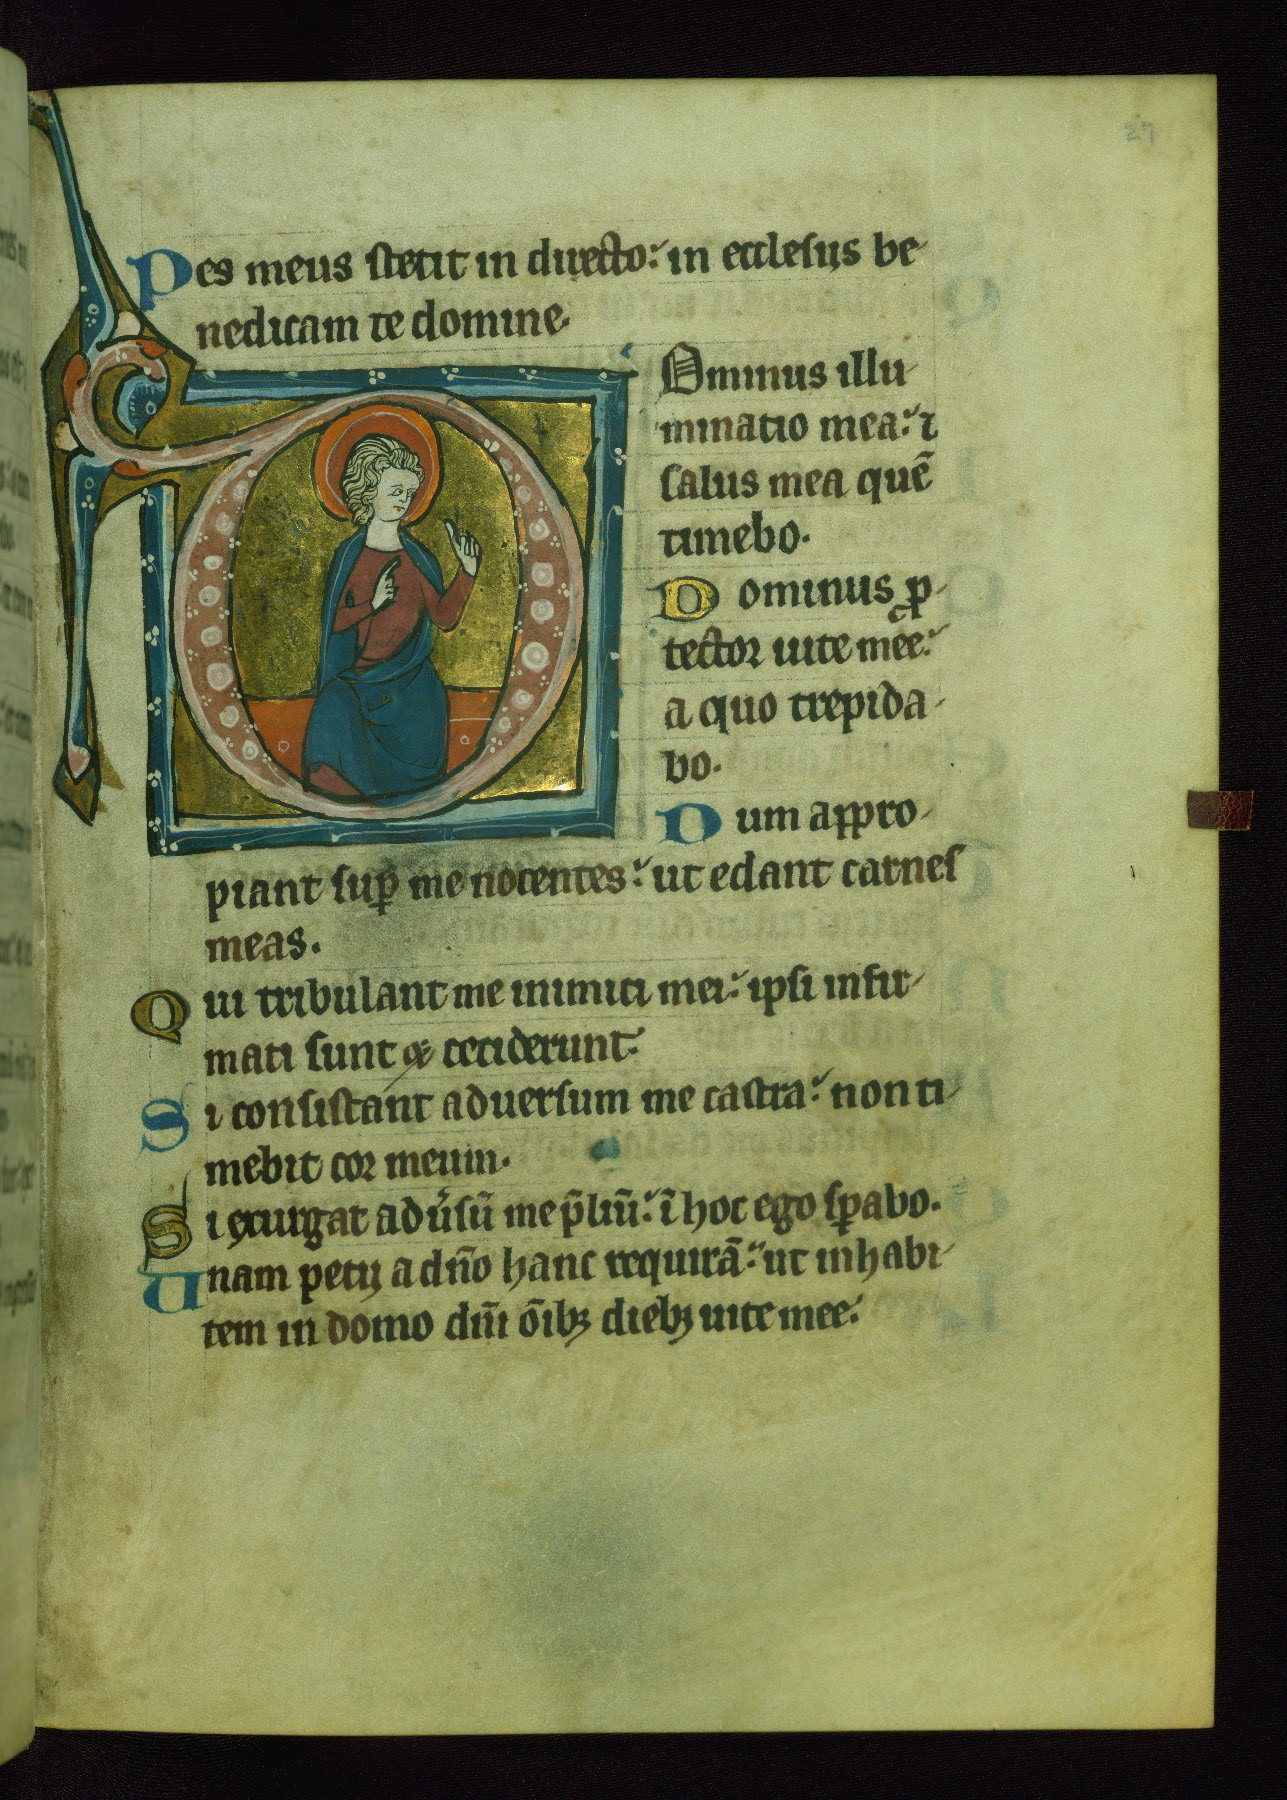 27
Pes meus stetit in directo: in ecclesijs be-
nedicam te domine.
Dominus illu-
minatio mea: ⁊
salus mea quē
timebo.
Dominus ꝓ-
tector uite mee:
a quo trepida-
bo.
Dum appro-
piant suꝑ me nocentes: ut edant carnes
meas.
Qui tribulant me inimici mei: ipsi infir-
mati sunt ⁊ ceciderunt.
Si consistant aduersum me castra: non ti-
mebit cor meum.
Si exurgat aduͥsū me p̄liū: ī hoc ego sꝑabo.
Unam petij a dn̄o hanc requirā: ut inhabi-
tem in domo dn̄i ōibꝫ diebꝫ uite mee.